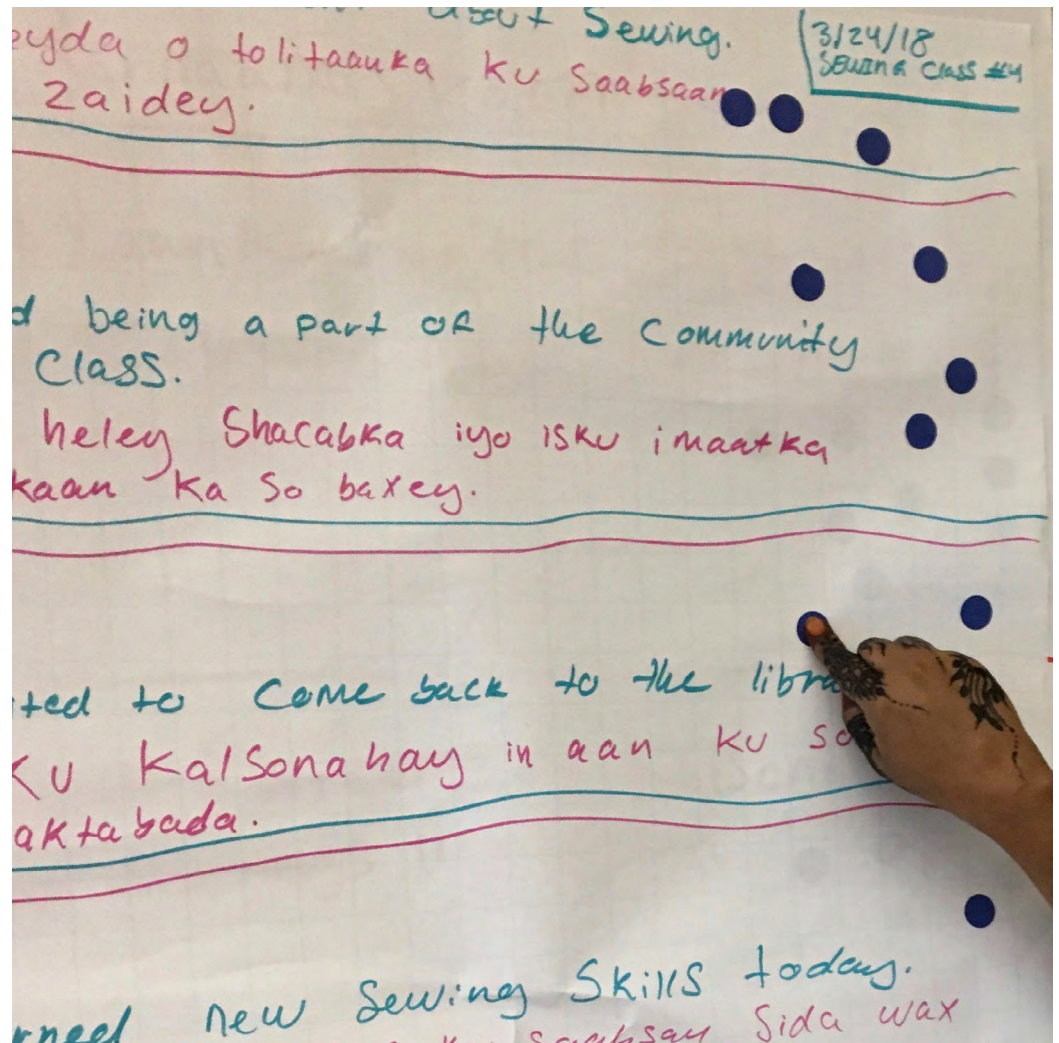 about Sewing.
3/24/18
Sewing Class #4
eyda o tolitaanka ku Saabsaan
Zaidey.
d being a part of the Community
Class.
heley Shacabka iyo isku imaatka
kaan ka so baxey.
ted to Come back to the libra
ku Kalsonahay in aan ku so
aktabada.
rned new Sewing Skills today.
Saabsan Sida wax